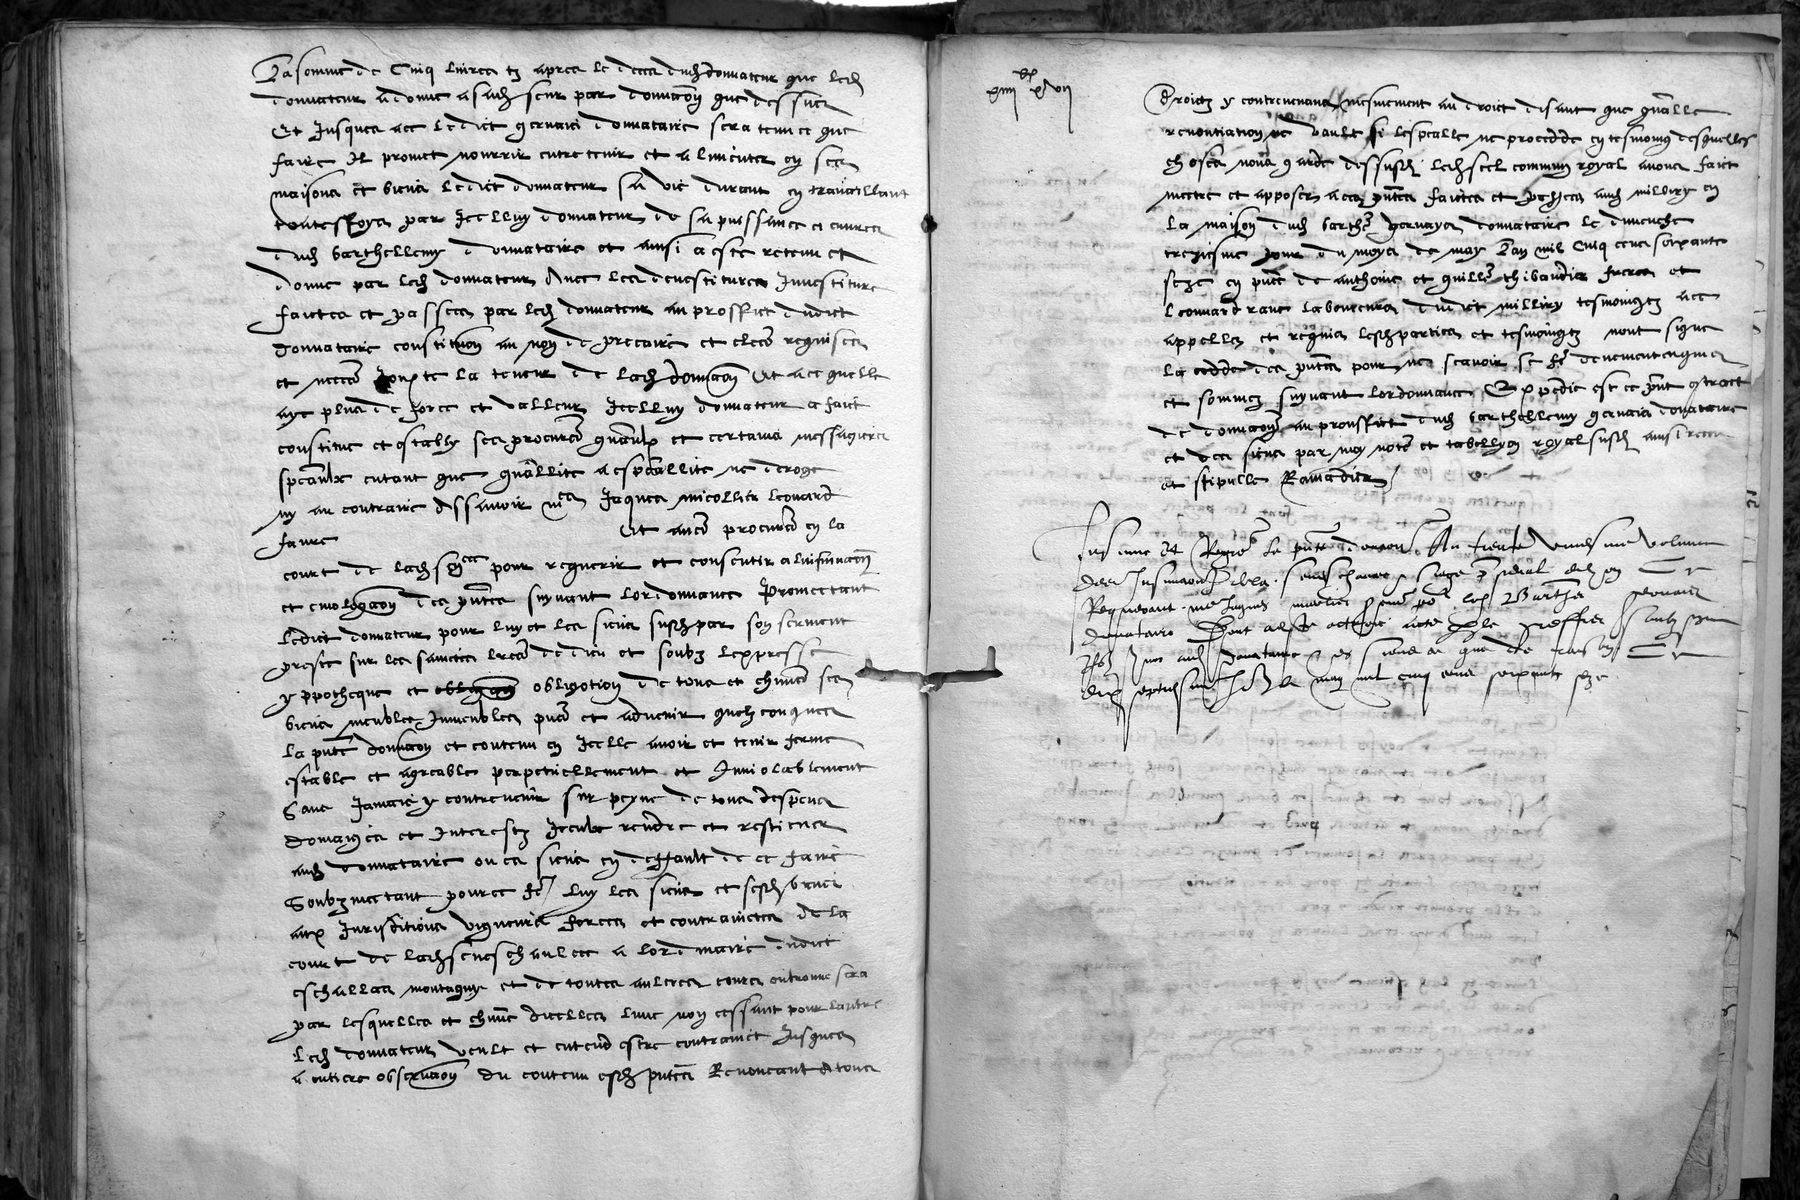 La somme de Cinq livres tz apres le deces dudt donnateur que ledt
donnateur a donne a sadt seur par donnaon que dessus
Et Jusques ace ledict gervais donnataire sera tenu ce que
faire Il promet nourrir entretenir et alimenter en ses
maisons et biens ledict donnateur sa vie durant en travaillant
toutesfoys par Icelluy donnateur de sa puissance es euvres
dudt barthellemy donnataire et ainsi a este retenu et
donne par ledt donnateur Avec les devestitures Investiture
faictes et passees par ledt donnateur au proffict dudict
donnataire constituon au nom de precaire et cleres requises
et neces Jouxte la teneur de ladt donnaon Et ace quelle
aye plus de force et valleur Icelluy donnateur a faict
constitue et estably ses procures gnaulx et certains messagiers
speaulx entant que gnallite a speallite ne deroge
ny au contraire Assavoir mes Jaques micollier leonard
faure Et aues procures en la
court de ladt senes pour requerir et consentir a linsinuaon
et emologaon des pntes suyvant lordonnance Promectant
ledict donnateur pour luy et les siens susdt par son serment
preste sur les sainctes lres de dieu et soubz lexpresse
yppotheque et obligation de tous et chuns ses
biens meubles Immeubles pns et advenir quelzconques
la pnte donnaon et contenu en Icelle avoir et tenir ferme
estable et agreable perpetuellement et Inviolablement
Sans Jamais y contrevenir sur peyne de tous despens
domaiges et Interestz Iceulx rendre et restituer
audt donnataire ou es siens en deffault de ce faire
Soubzmectant pource fe luy les siens et sesdt biens
aux Jurisditions vigueurs forces et contrainctes de la
court de ladt seneschaulcee a lordinaire dudict
eschallas montagny et de toutes aultres cours outrouve sera
par lesquelles et chune dicelles lune non cessant pour lautre
ledt donnateur veult et entend estre contrainct Jusques
a entiere observaon du contenu esdt pntes Renoncant a tous
droictz y contrevenans mesmement au droict disant que gnalle
renontiation ne vault si lespealle ne procedde en tesmoing desquelles
choses nous garde dessusdt ledt seel commun royal avons faict
mectre et apposer a ces pntes faictes et passees audt millery en
la maison dudt barthe gervayes donnataire le dimenche
treziesme jour du moys de may Lan mil Cinq cens soixante
seze en pnce de anthoine et guille thibaudier freres et
leonnard ranc laboureurs dudict millery tesmoingtz ace
appelles et requis lesdt parties et tesmoingtz nont signe
la cedde des pntes pour ne scavoir se fe devement enquis
et sommez suyvant lordonnance Expedie est ce pnt contract
de donnaon au prouffict dudt barthellemy gervais donataire
et des siens par moy note et tabellyon royal susdt ainsi receu
et stipulle Ramadier
Insinue et Regre la pnte donaon Au trente uniesme volume
des Insinuaons
Requerant me Jaques micollier Barthe gervais
donataire Dont acte greffier
may mil cinq cens soixante seze